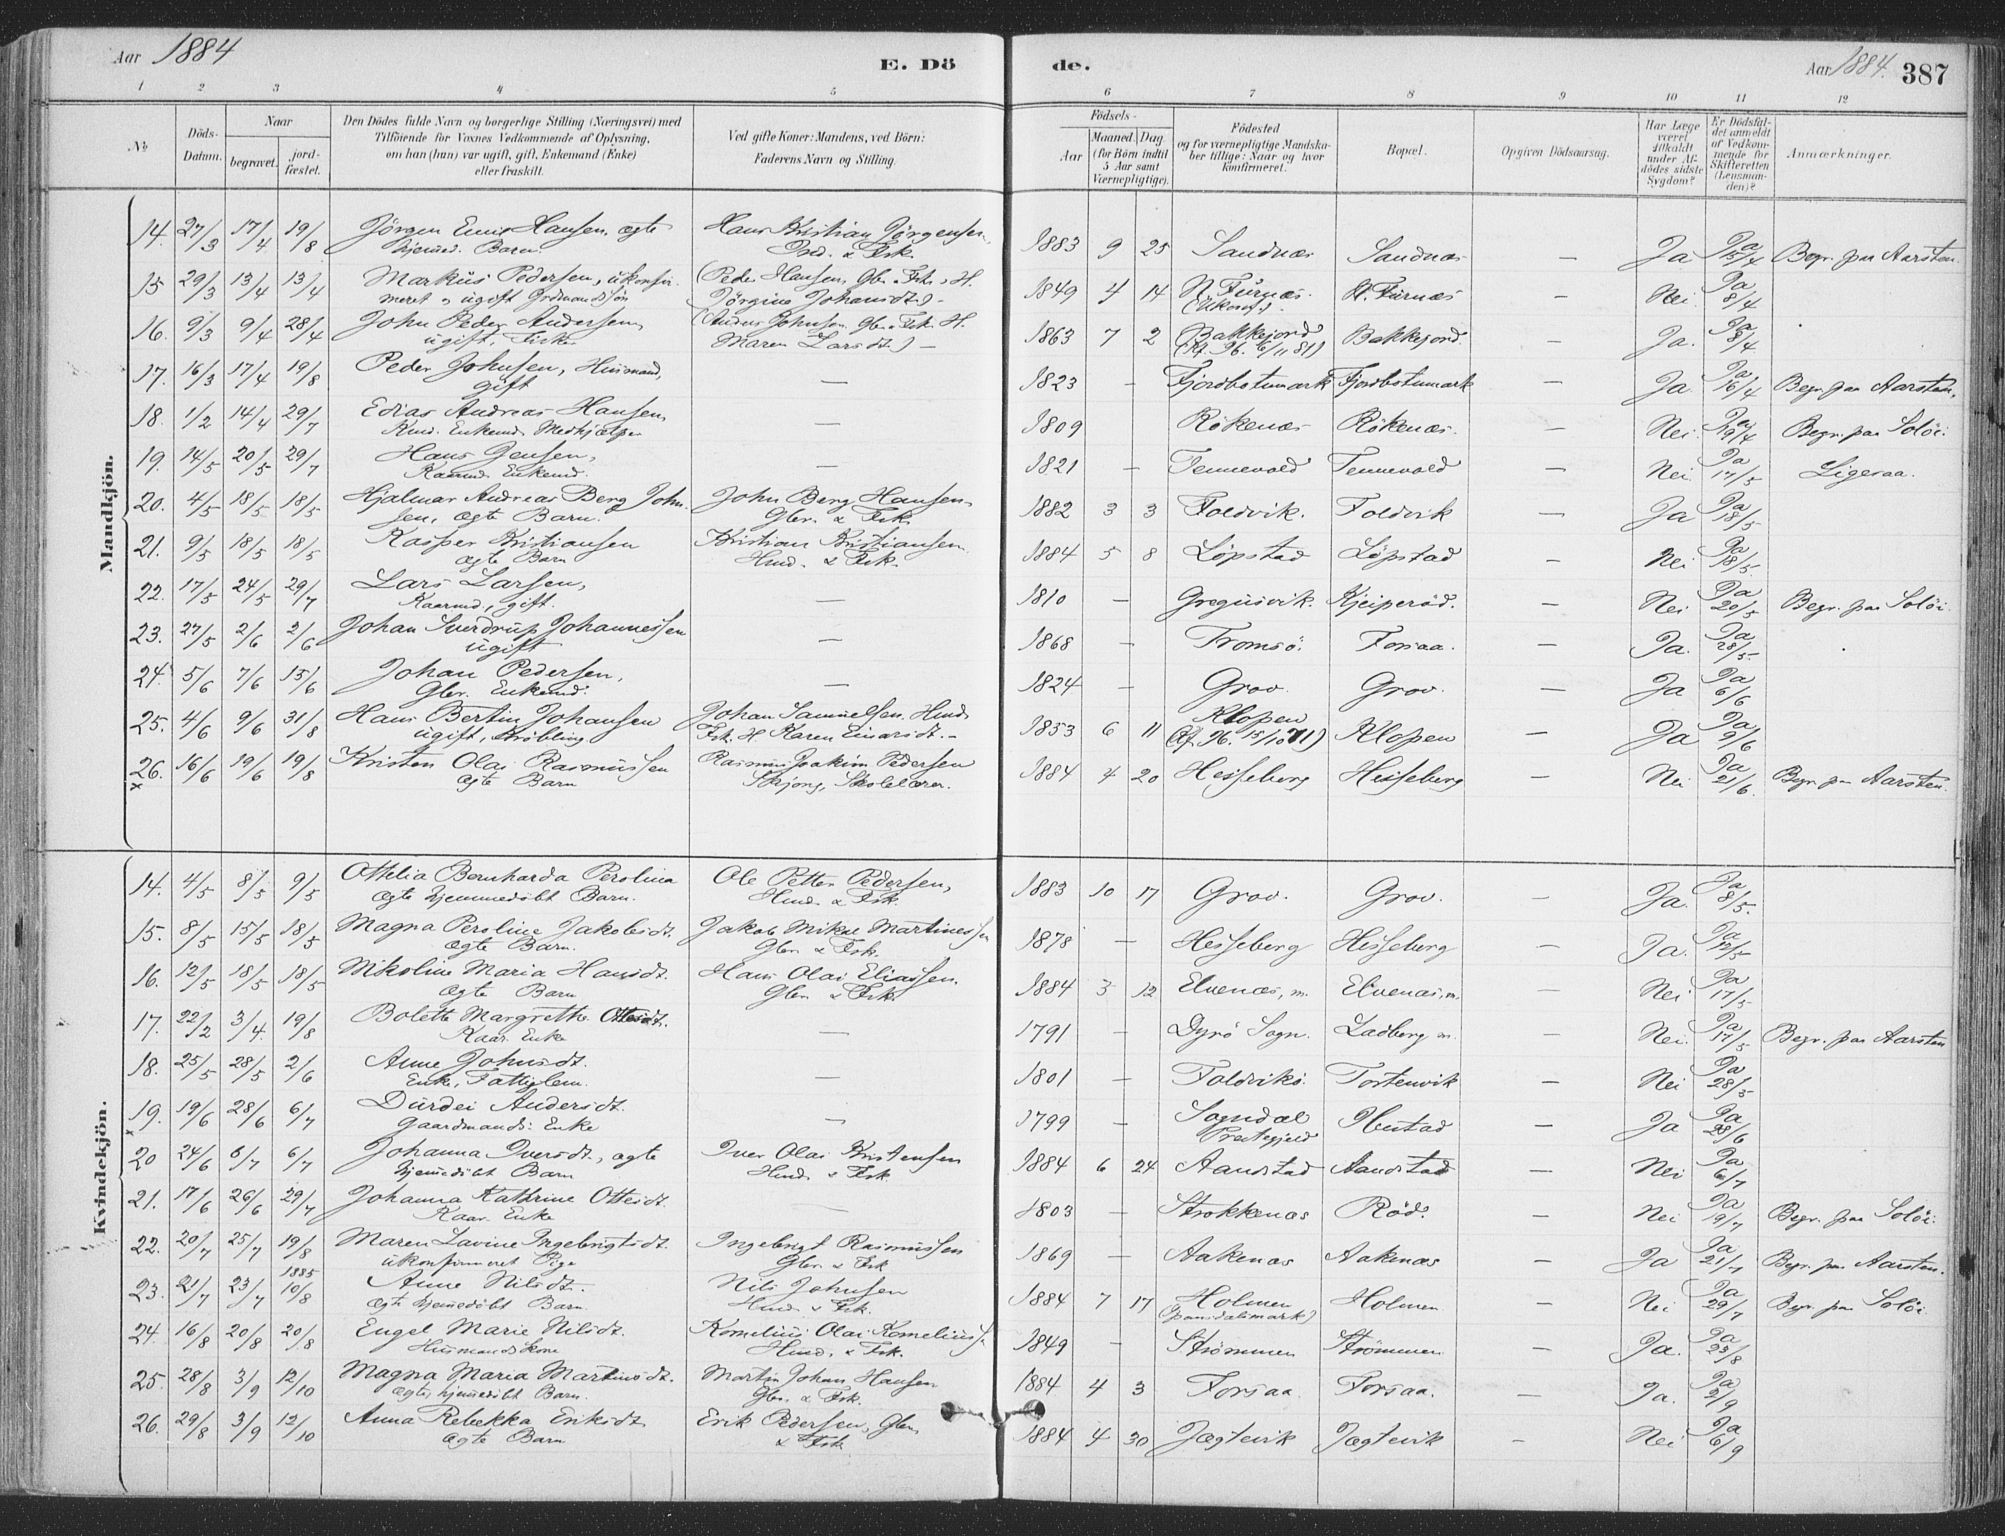 Aar 1884
E. Dö
de.
Aar 1884. 387
1 2 3 4 5 6 7 8 9 10 11 12
No
Döds-
Datum.
Naar
begravet.
jord-
fæstet.
Den Dödes fulde Navn og borgerlige Stilling (Næringsvei) med
Tilföiende for Voxnes Vedkommende af Oplysning,
om han (hun) var ugift, gift, Enkemand (Enke)
eller fraskilt.
Ved gifte Koner: Mandens, ved Börn:
Faderens Navn og Stilling.
Födsels-
Aar
Maaned. Dag
(for Börn indtil
5 Aar samt
Værnepligtige).
Födested
og for værnepligtige Mandska-
ber tillige: Naar og hvor
konfirmeret.
Bopæl.
Opgiven Dödsaarsag.
Har Læge
været
tilkaldt
under Af-
dödes sidste
Sygdom?
Er Dödsfal-
det anmeldt
af Vedkom-
mende for
Skifteretten
(Lensman-
den)?
Anmærkninger.
Mandkjön.
14. 27/3 17/4 19/8 Jörgen Hansen, ægte Hans Kristian Jörgensen, 1883 9 25 Sandnæs Sandnæs — Ja Ja 15/4 Begr. paa Aarsten.
hjemmed. Barn. & Fsk.
15 29/3 13/4 13/4 Markus Pedersen, ukonfir- (Peder Hansen, Gbr. & Fsk. H. 1849 4 14 N. Furnæs. N. Furnæs — Nei. Ja 8/4
meret & ugift Grdmandssön Jörgine Johansdt.) — (Ukonf.)
16. 9/3 9/4 28/4 John Peder Andersen, (Anders Johnsen, Gbr. & Fsk. H. 1863 7 2 Bakkejord Bakkejord. — Ja. Ja 8/4
ugift, Fisker Maren Larsdt.) — (Kf. 6/11 81)
17. 16/3 17/4 19/8 Peder Johnsen, Husmand, — 1823 — Fjordbotnmark Fjordbotnmark — Ja. Ja 16/4 Begr. paa Aarsten.
gift
18. 1/2 14/4 29/7 Edias Andreas Hansen, — 1809 Rökenæs Rökenæs. — Nei. Ja 19/4 Begr. paa Solöi.
Enkemd. Medhjælper
19. 14/5 20/5 29/7 Hans Jensen, — 1821 — Tennevold Tennevold — Nei Ja 17/5 Ligesaa.
Kaarmd. Enkemd.
20. 4/5 18/5 18/5 Hjalmar Andreas Berg John- John Berg Hansen, 1882 3 3 Foldvik. Foldvik — Ja Ja 18/5
sen, ægte Barn. Gbr. & Fsk.
21. 9/5 18/5 18/5 Kasper Kristiansen Kristian Kristiansen. 1884 5 8 Löpstad Löpstad — Nei Ja 18/5.
ægte Barn Hmd. & Fsk.
22. 17/5 24/5 29/7 Lars Larsen, — 1810 — Gregusvik. Kjeiperöd. — Nei Ja 20/5 Begr. paa Solöi.
Kaarmd, gift.
23. 27/5 2/6 2/6 Johan Sverdrup Johannessen — 1868 — Tromsö. Forsaa. — Ja. Ja 28/5.
ugift
24. 5/6 7/6 15/6 Johan Pedersen, — 1824 — Grov. Grov. — Ja Ja 6/6
Gbr. Enkemd.
25. 4/6 9/6 31/8 Hans Bertin Johansen Johan Samuelsen, Hmd. 1853 6 11 Klopen Klopen — Ja Ja 9/6
ugift, Kröbling Fsk. H Karen Einarsdt. — (Kf. 15/10 71)
26. 16/6 19/6 19/8 Kristen Olai Rasmussen Rasmus Joakim Pedersen 1884 4 20 Hesseberg Hesseberg — Nei Ja 21/6. Begr. paa Aarsten.
x ægte Barn Skjong, Skolelærer.
Kvindekjön.
14. 4/5 8/5 9/5 Othelia Bernharda Perolina Ole Petter Pedersen, 1883 10 17 Grov. Grov. — Ja. Ja 8/5.
ægte hjemmedöbt Barn. Hmd. & Fsk.
15. 8/5 15/5 18/5 Magna Peroline Jakobsdt. Jakob Mikal Martinussen 1878 — Hesseberg Hesseberg — Ja. Ja 12/5
ægte Barn. Gbr. & Fsk.
16. 12/5 18/5 18/5 Nikoline Maria Hansdt. Hans Olai Eliassen. 1884 3 12 Elvenæs, m. Elvenæs, m. — Nei. Ja 17/5
ægte Barn Gbr. & Fsk.
17. 22/2 3/4. 19/8 Bolette Margrethe Ottesdt. — 1791 — Dyrö Sogn. Ladberg m. — Nei. Ja 17/5 Begr. paa Aarsten
Kaar. Enke
18. 25/5 28/5 2/6 Anne Johnsdt. — 1801 — Foldvik. Tortenvik — Nei Ja 28/5
Enke, Fattiglem.
19. 19/6 28/6 6/7 Durdei Andersdt. — 1799 Sogndal Ibestad — Ja Ja 28/6
x Gaardmands Enke Prestegjeld
20 24/6 6/7 6/7 Johanna Iversdt, ægte Iver Olai Kristensen 1884 6 24 Aanstad Aanstad — Nei Ja 6/7
hjemmedöbt Barn Hmd. & Fsk
21. 17/6 26/6 29/7 Johanna Kathrine Ottesdt. — 1803 — Strokkenæs Röd. — Nei Ja 19/7 Begr. paa Solöi.
Kaar. Enke
22. 20/7 25/7 19/8 Maren Lavine Ingebrigtsdt. Ingebrigt Rasmussen 1869 — Aakenæs Aakenæs — Ja Ja 21/7 Begr. paa Aarsten.
ukonfirmeret Pige Gbr. & Fsk
23. 21/7 23/7 1885 10/8 Anne Nilsdt. Nils Johnsen 1884 7 17 Holmen Holmen. — Nei Ja 29/7 Begr. paa Solöi.
ægte hjemmedöbt Barn. Hmd. & Fsk. (Spansdalsmark)
24. 16/8 20/8 20/8 Engel Marie Nilsdt. Kornelius Olai Korneliuss. 1849 — Strömmen Strömmen — Ja. Ja 23/8
Husmandskone Hmd. & Fsk.
25. 28/8 3/9 12/10 Magna Maria Martinsdt. Martin Johan Hansen 1884 4 3 Forsaa. Forsaa. — Ja. Ja 2/9
ægte hjemmedöbt Barn. Gbr. & Fsk.
26. 29/8 3/9 12/10 Anna Rebekka Eriksdt Erik Pedersen, Gbr. 1884 4 30 Jægtevik Jægtevik — Nei Ja 6/9
ægte Barn & Fsk